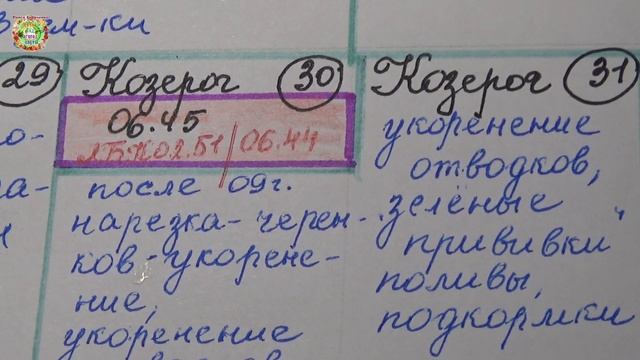 м-ки
29
Козерог 30
06.45
ЛБК02.51/06.44
после 09г.
нарезка-черен-
ков-укорене-
ние,
укоренение
Козерог 31
укоренение
отводков,
зелёные
прививки"
поливы,
подкормки